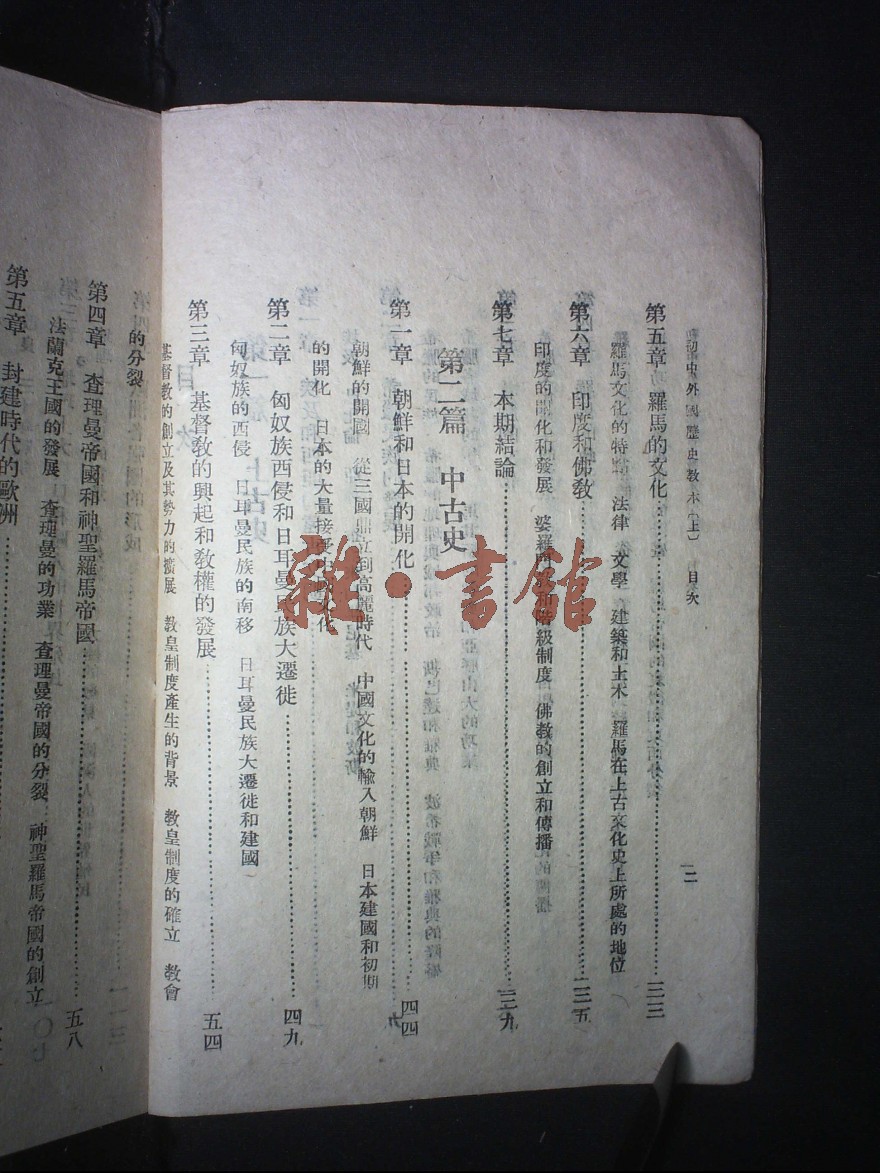 初中外國歷史教本（上） 目次
二
第五章 羅馬的文化……三三
羅馬文化的特點 法律 文學 建築和土木 羅馬在上古文化史上所處的地位
第六章 印度和佛教……三五
印度的開化和發展 婆羅門教和階級制度 佛教的創立和傳播
第七章 本期結論……三九
第二篇 中古史
第一章 朝鮮和日本的開化……四四
朝鮮的開國 從三國鼎立到高麗時代 中國文化的輸入朝鮮 日本建國和初期
的開化 日本的大量接受中國文化
第二章 匈奴族西侵和日耳曼民族大遷徙……四九
匈奴族的西侵 日耳曼民族的南移 日耳曼民族大遷徙和建國
第三章 基督教的興起和教權的發展……五四
基督教的創立及其勢力的擴展 教皇制度產生的背景 教皇制度的確立 教會
的分裂
第四章 查理曼帝國和神聖羅馬帝國……五八
法蘭克王國的發展 查理曼的功業 查理曼帝國的分裂 神聖羅馬帝國的創立
第五章 封建時代的歐洲……
雜·書館